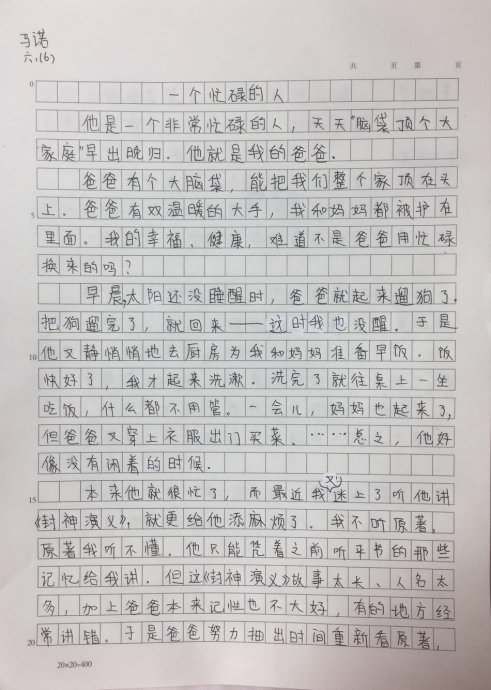 马诺
六.(6)
共 页 第 页
0
一个忙碌的人
他是一个非常忙碌的人，天天“脑袋顶个大
家庭”早出晚归．他就是我的爸爸．
爸爸有个大脑袋，能把我们整个家顶在头
5 上．爸爸有双温暖的大手，我和妈妈都被护在
里面。我的幸福、健康，难道不是爸爸用忙碌
换来的吗？
早晨,太阳还没睡醒时，爸爸就起来遛狗了．
把狗遛完了，就回来——这时我也没醒．于是
10 他又静悄悄地去厨房为我和妈妈准备早饭．饭
快好了，我才起来洗漱．洗完了就往桌上一坐
吃饭，什么都不用管。一会儿，妈妈也起来了，
但爸爸又穿上衣服出门买菜．……总之，他好
像没有闲着的时候．
15 本来他就很忙了，而最近我又迷上了听他讲
《封神演义》，就更给他添麻烦了．我不听原著，
原著我听不懂．他只能凭着之前听平书的那些
记忆给我讲．但这《封神演义》故事太长、人名太
多，加上爸爸本来记性也不大好，有的地方经
20 常讲错．于是爸爸努力抽出时间重新看原著，
20×20=400